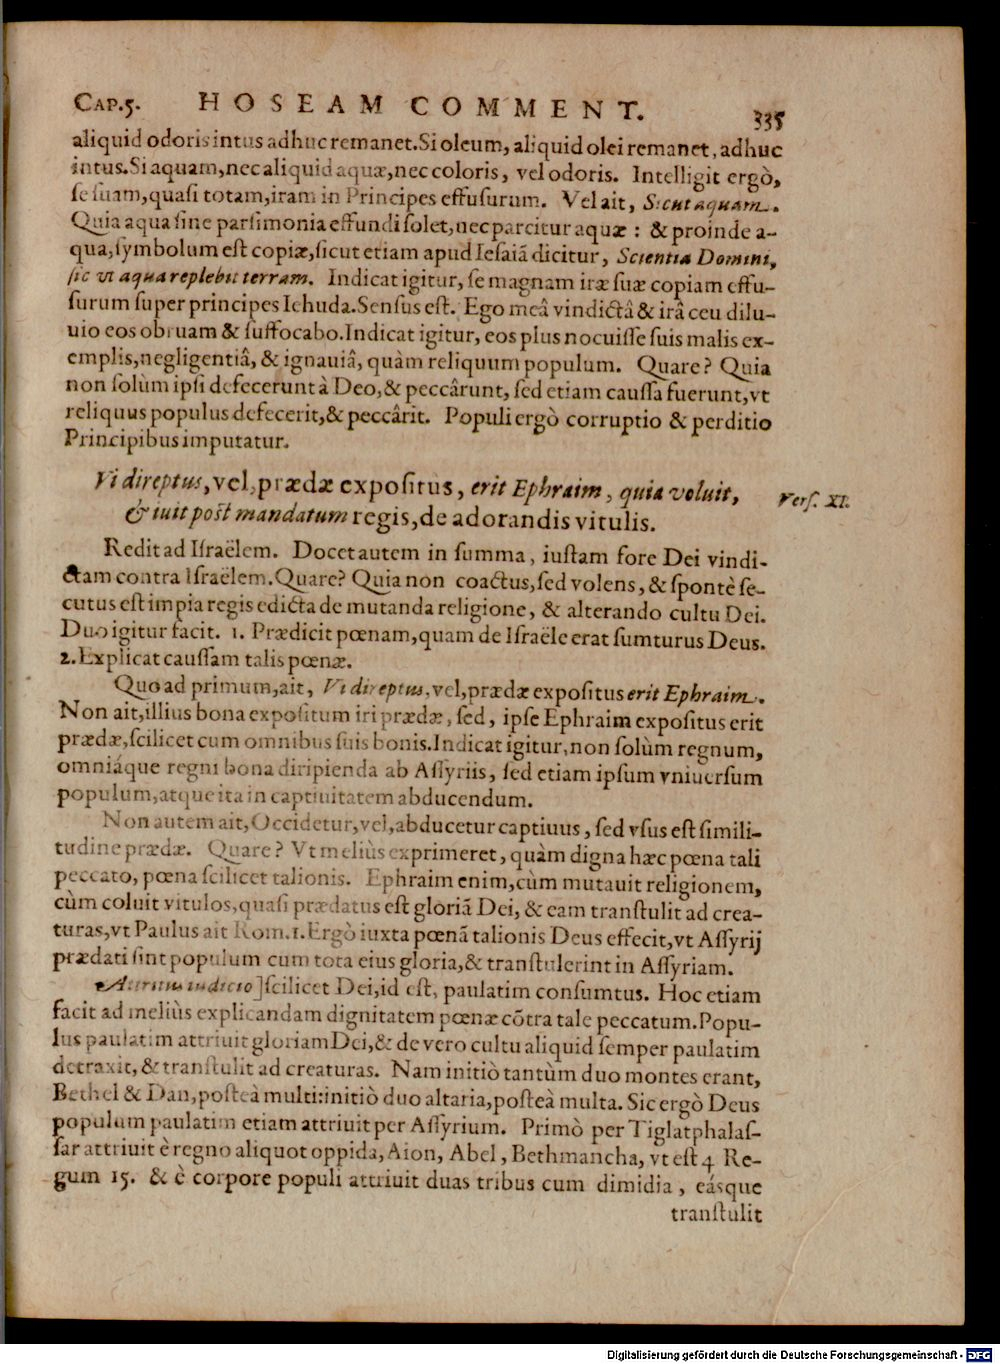 CAP.5. HOSEAM COMMENT. 335
aliquid odoris intus adhuc remanet. Si oleum, aliquid olei remanet, adhuc
intus. Si aquam, nec aliquid aquæ, nec coloris, vel odoris. Intelligit ergò,
ſe ſuam, quaſi totam, iram in Principes effuſurum. Vel ait, Sicut aquam.
Quia aqua ſine parſimonia effundi ſolet, nec parcitur aquæ : & proinde a-
qua, ſymbolum eſt copiæ, ſicut etiam apud Ieſaiã dicitur, Scientia Domini,
ſic vt aqua replebit terram. Indicat igitur, ſe magnam iræ ſuæ copiam effu-
ſurum ſuper principes Iehuda. Senſus eſt. Ego meâ vindictâ & irâ ceu dilu-
uio eos obruam & ſuffocabo. Indicat igitur, eos plus nocuiſſe ſuis malis ex-
emplis, negligentiâ, & ignauiâ, quàm reliquum populum. Quare? Quia
non ſolùm ipſi defecerunt à Deo, & peccârunt, ſed etiam cauſſa fuerunt, vt
reliquus populus defecerit, & peccârit. Populi ergò corruptio & perditio
Principibus imputatur.
Vi direptus, vel, prædæ expoſitus, erit Ephraim, quia voluit, Verſ. XI.
& iuit poſt mandatum regis, de adorandis vitulis.
Redit ad Iſraëlem. Docet autem in ſumma, iuſtam fore Dei vindi-
ctam contra Iſraëlem. Quare? Quia non coactus, ſed volens, & ſpontè ſe-
cutus eſt impia regis edicta de mutanda religione, & alterando cultu Dei.
Duo igitur facit. 1. Prædicit pœnam, quam de Iſraële erat ſumturus Deus.
2. Explicat cauſſam talis pœnæ.
Quo ad primum, ait, Vi direptus, vel, prædæ expoſitus erit Ephraim.
Non ait, illius bona expoſitum iri prædæ, ſed, ipſe Ephraim expoſitus erit
prædæ, ſcilicet cum omnibus ſuis bonis. Indicat igitur, non ſolùm regnum,
omniáque regni bona diripienda ab Aſſyriis, ſed etiam ipſum vniuerſum
populum, atque ita in captiuitatem abducendum.
Non autem ait, Occidetur, vel, abducetur captiuus, ſed vſus eſt ſimili-
tudine prædæ. Quare? Vt meliùs exprimeret, quàm digna hæc pœna tali
peccato, pœna ſcilicet talionis. Ephraim enim, cùm mutauit religionem,
cùm coluit vitulos, quaſi prædatus eſt gloriã Dei, & eam tranſtulit ad crea-
turas, vt Paulus ait Rom. 1. Ergò iuxta pœnã talionis Deus effecit, vt Aſſyrij
prædati ſint populum cum tota eius gloria, & tranſtulerint in Aſſyriam.
Attritus iudicio] ſcilicet Dei, id eſt, paulatim conſumtus. Hoc etiam
facit ad meliùs explicandam dignitatem pœnæ cõtra tale peccatum. Popu-
lus paulatim attriuit gloriam Dei, & de vero cultu aliquid ſemper paulatim
detraxit, & tranſtulit ad creaturas. Nam initiò tantùm duo montes erant,
Bethel & Dan, poſteà multi: initiò duo altaria, poſteà multa. Sic ergò Deus
populum paulatim etiam attriuit per Aſſyrium. Primò per Tiglatphalaſ-
ſar attriuit è regno aliquot oppida, Aion, Abel, Bethmancha, vt eſt 4 Re-
gum 15. & è corpore populi attriuit duas tribus cum dimidia, eásque
tranſtulit
Digitalisierung gefördert durch die Deutsche Forschungsgemeinschaft - DFG